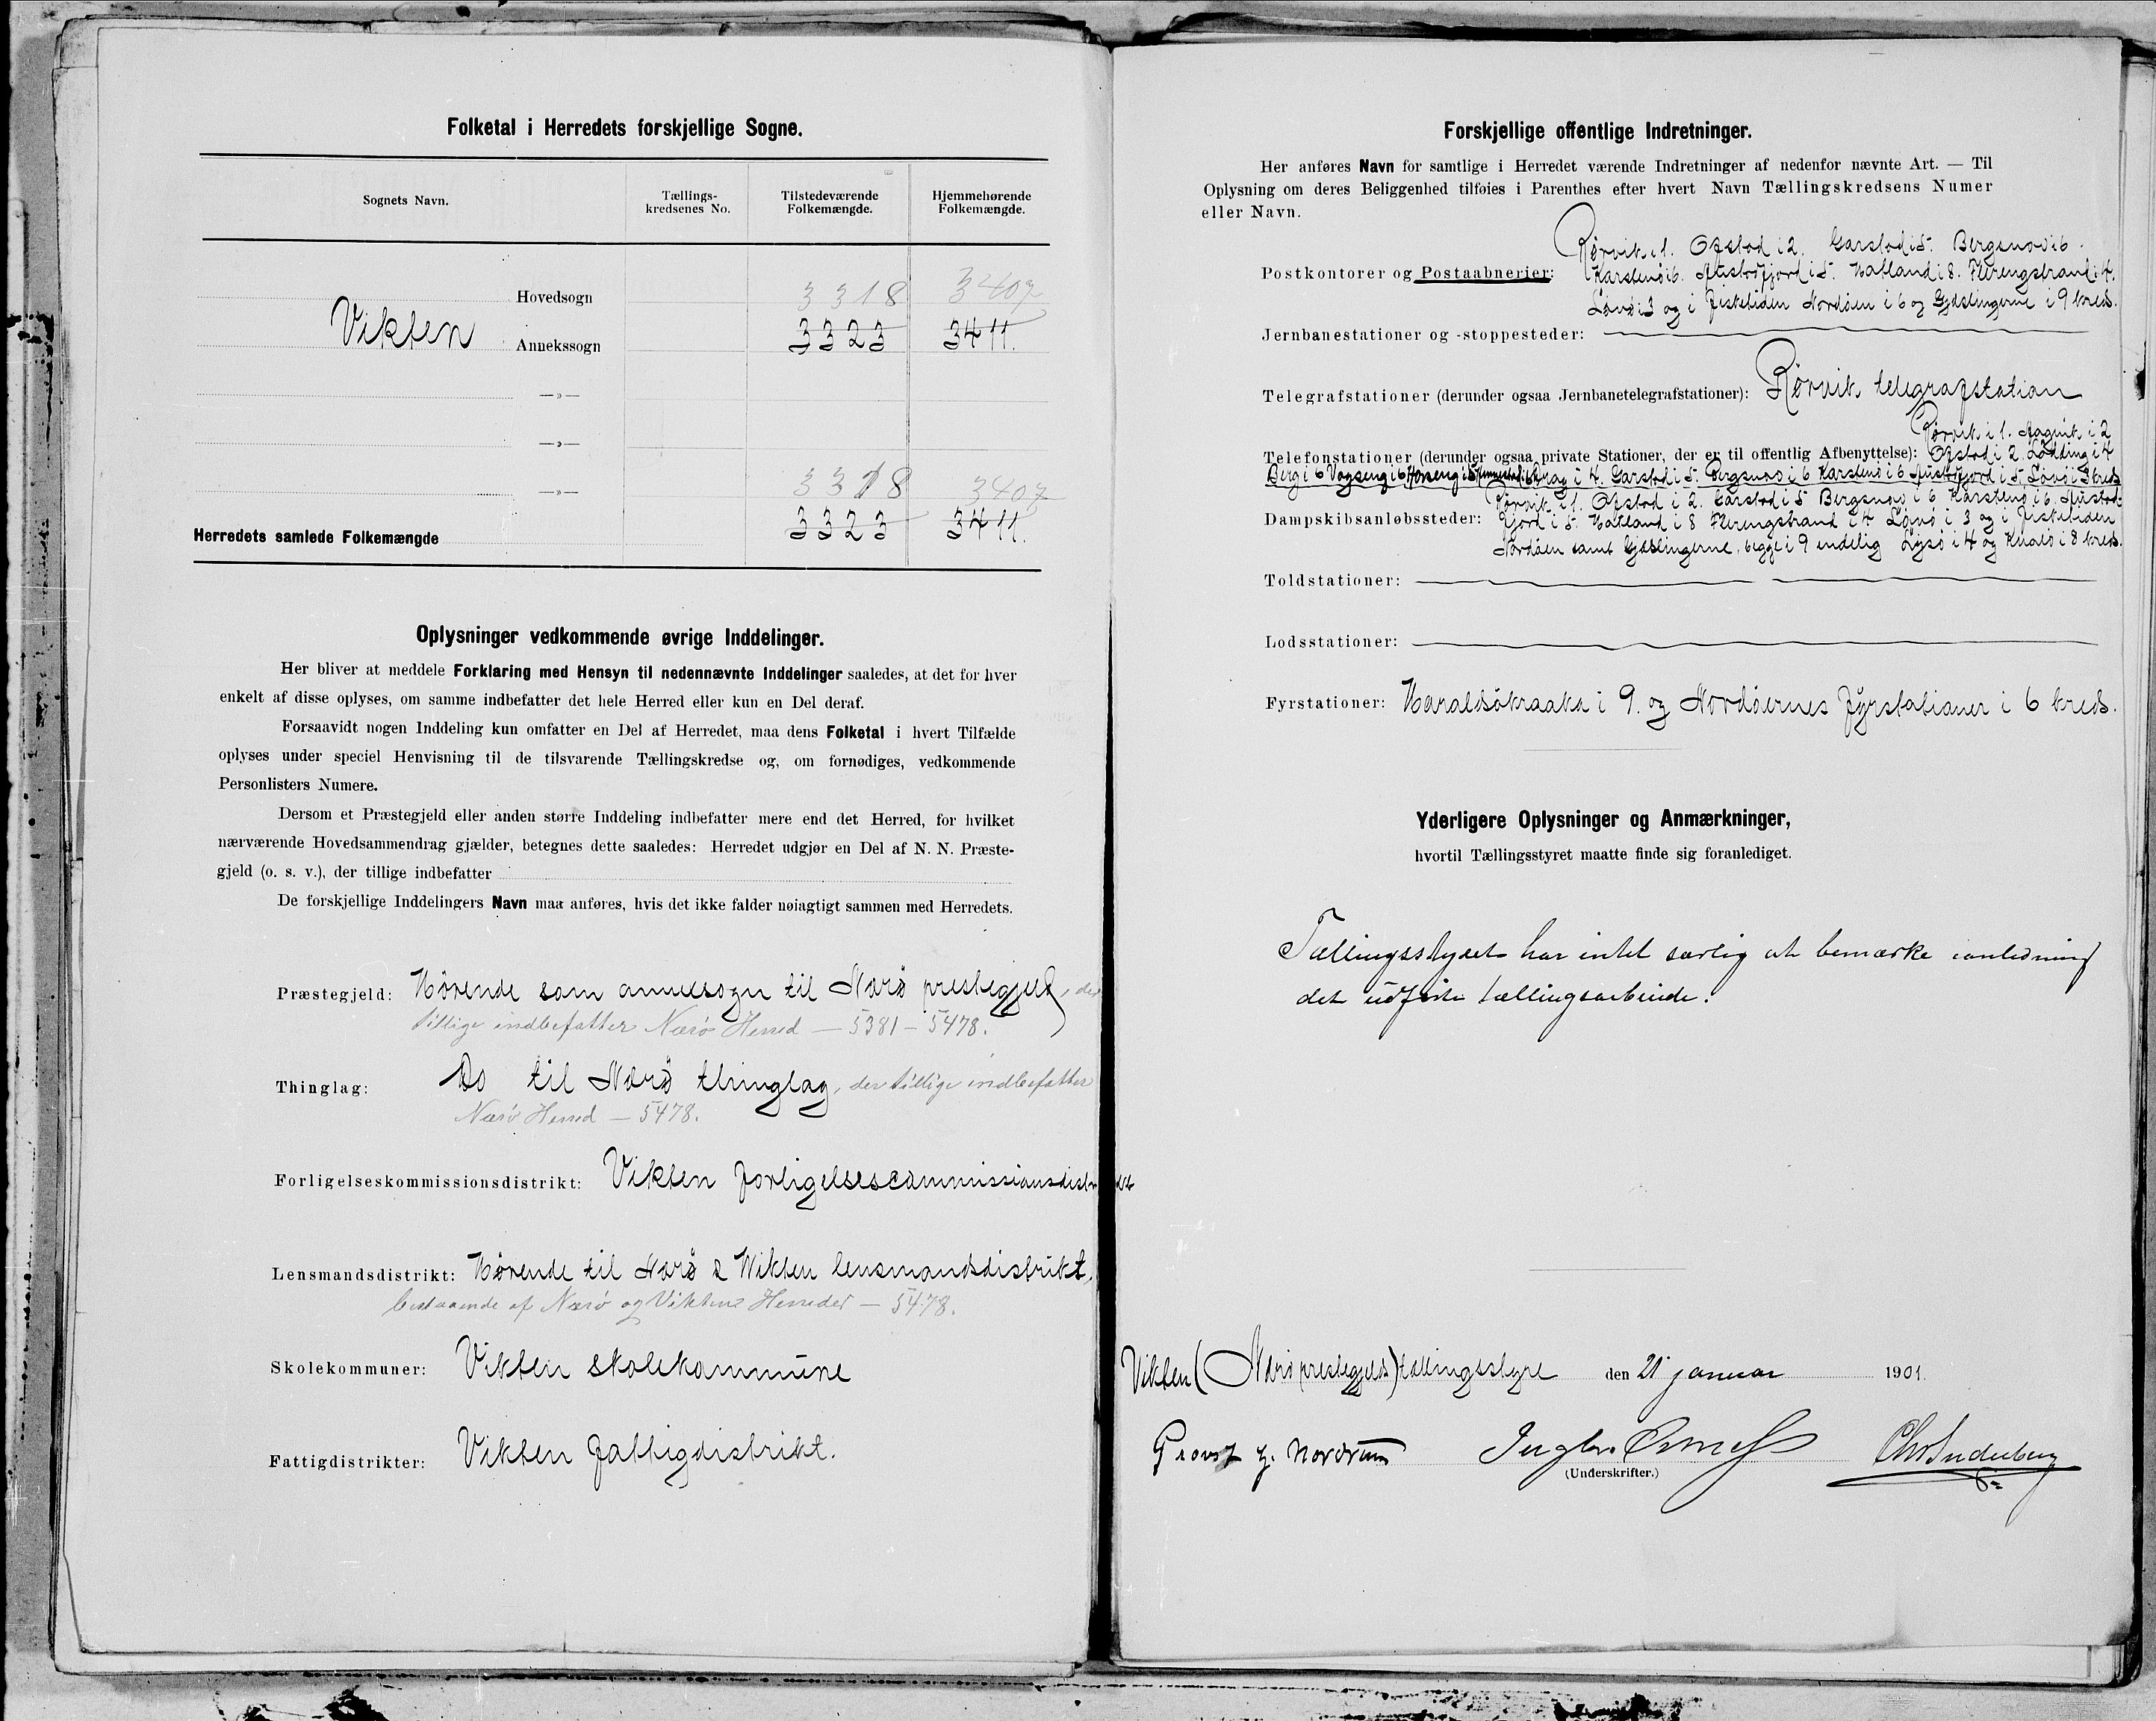 Folketal i Herredets forskjellige Sogne.
Sognets Navn.
Tællings-
kredsenes No.
Tilstedeværende
Folkemængde.
Hjemmehørende
Folkemængde.
Hovedsogn 3318 3407
Vikten Annekssogn 3323 3411.
—»—
—»—
—»— 3318 3407
Herredets samlede Folkemængde 3323 3411.
Oplysninger vedkommende øvrige Inddelinger.
Her bliver at meddele Forklaring med Hensyn til nedennævnte Inddelinger saaledes, at det for hver
enkelt af disse oplyses, om samme indbefatter det hele Herred eller kun en Del deraf.
Forsaavidt nogen Inddeling kun omfatter en Del af Herredet, maa dens Folketal i hvert Tilfælde
oplyses under speciel Henvisning til de tilsvarende Tællingskredse og, om fornødiges, vedkommende
Personlisters Numere.
Dersom et Præstegjeld eller anden større Inddeling indbefatter mere end det Herred, for hvilket
nærværende Hovedsammendrag gjælder, betegnes dette saaledes: Herredet udgjør en Del af N. N. Præste-
gjeld (o. s. v.), der tillige indbefatter
De forskjellige Inddelingers Navn maa anføres, hvis det ikke falder nøiagtigt sammen med Herredets.
Præstegjeld: Hörende som annexsogn til Nærö prestegjeld, der
tillige indbefatter Nærø Herred — 5381 — 5478.
Thinglag: Do til Nærö thinglag, der tillige indbefatter
Nærø Herred — 5478.
Forligelseskommissionsdistrikt: Vikten forligelsescommissionsdistrikt
Lensmandsdistrikt: Hörende til Nærö & Vikten lensmandsdistrikt,
bestaaende af Nærø og Viktens Herreder — 5478.
Skolekommuner: Vikten skolekommune
Fattigdistrikter: Vikten fattigdistrikt.
Forskjellige offentlige Indretninger.
Her anføres Navn for samtlige i Herredet værende Indretninger af nedenfor nævnte Art. — Til
Oplysning om deres Beliggenhed tilføies i Parenthes efter hvert Navn Tællingskredsens Numer
eller Navn.
Rörvik i 1. Ofstad i 2. Garstad i 5. Bergsnov i 6.
Postkontorer og Postaabnerier: Karstenö i 6. Austafjord i 5. Hatland i 8. Flerengstrand i 4.
Lavö i 3 og i fisketiden Nordöen i 6 og Gjæslingerne i 9 kreds.
Jernbanestationer og -stoppesteder:
Telegrafstationer (derunder ogsaa Jernbanetelegrafstationer): Rörvik telegrafstation
Rörvik i 1. i 2
Telefonstationer (derunder ogsaa private Stationer, der er til offentlig Afbenyttelse): Ofstad i 2. i 4
Berg i 6 i 4. Garstad i 5. Bergsnov i 6 Karstenö i 6 Austafjord i 5. Lavö i 3 kreds
Rörvik i 1. Ofstad i 2. Garstad i 5 Bergsnov i 6 Karstenö i 6. Austad-
Dampskibsanløbssteder: fjord i 5. Hatland i 8 Flerengstrand i 4 Lavö i 3 og i fisketiden
Nordöen samt Gjæslingerne, begge i 9 endelig Lysö i 4 og Kualö i 8 kreds.
Toldstationer:
Lodsstationer:
Fyrstationer: Haraldsökraaka i 9. og Nordöernes fyrstationer i 6 kreds.
Yderligere Oplysninger og Anmærkninger,
hvortil Tællingsstyret maatte finde sig foranlediget.
Tællingsstyret har intet særlig at bemærke ianledning
det udförte tællingsarbeide.
Vikten (Nærö prestegjelds) tællingsstyre den 21 januar 1901.
Provst Nordrum
(Underskrifter.)